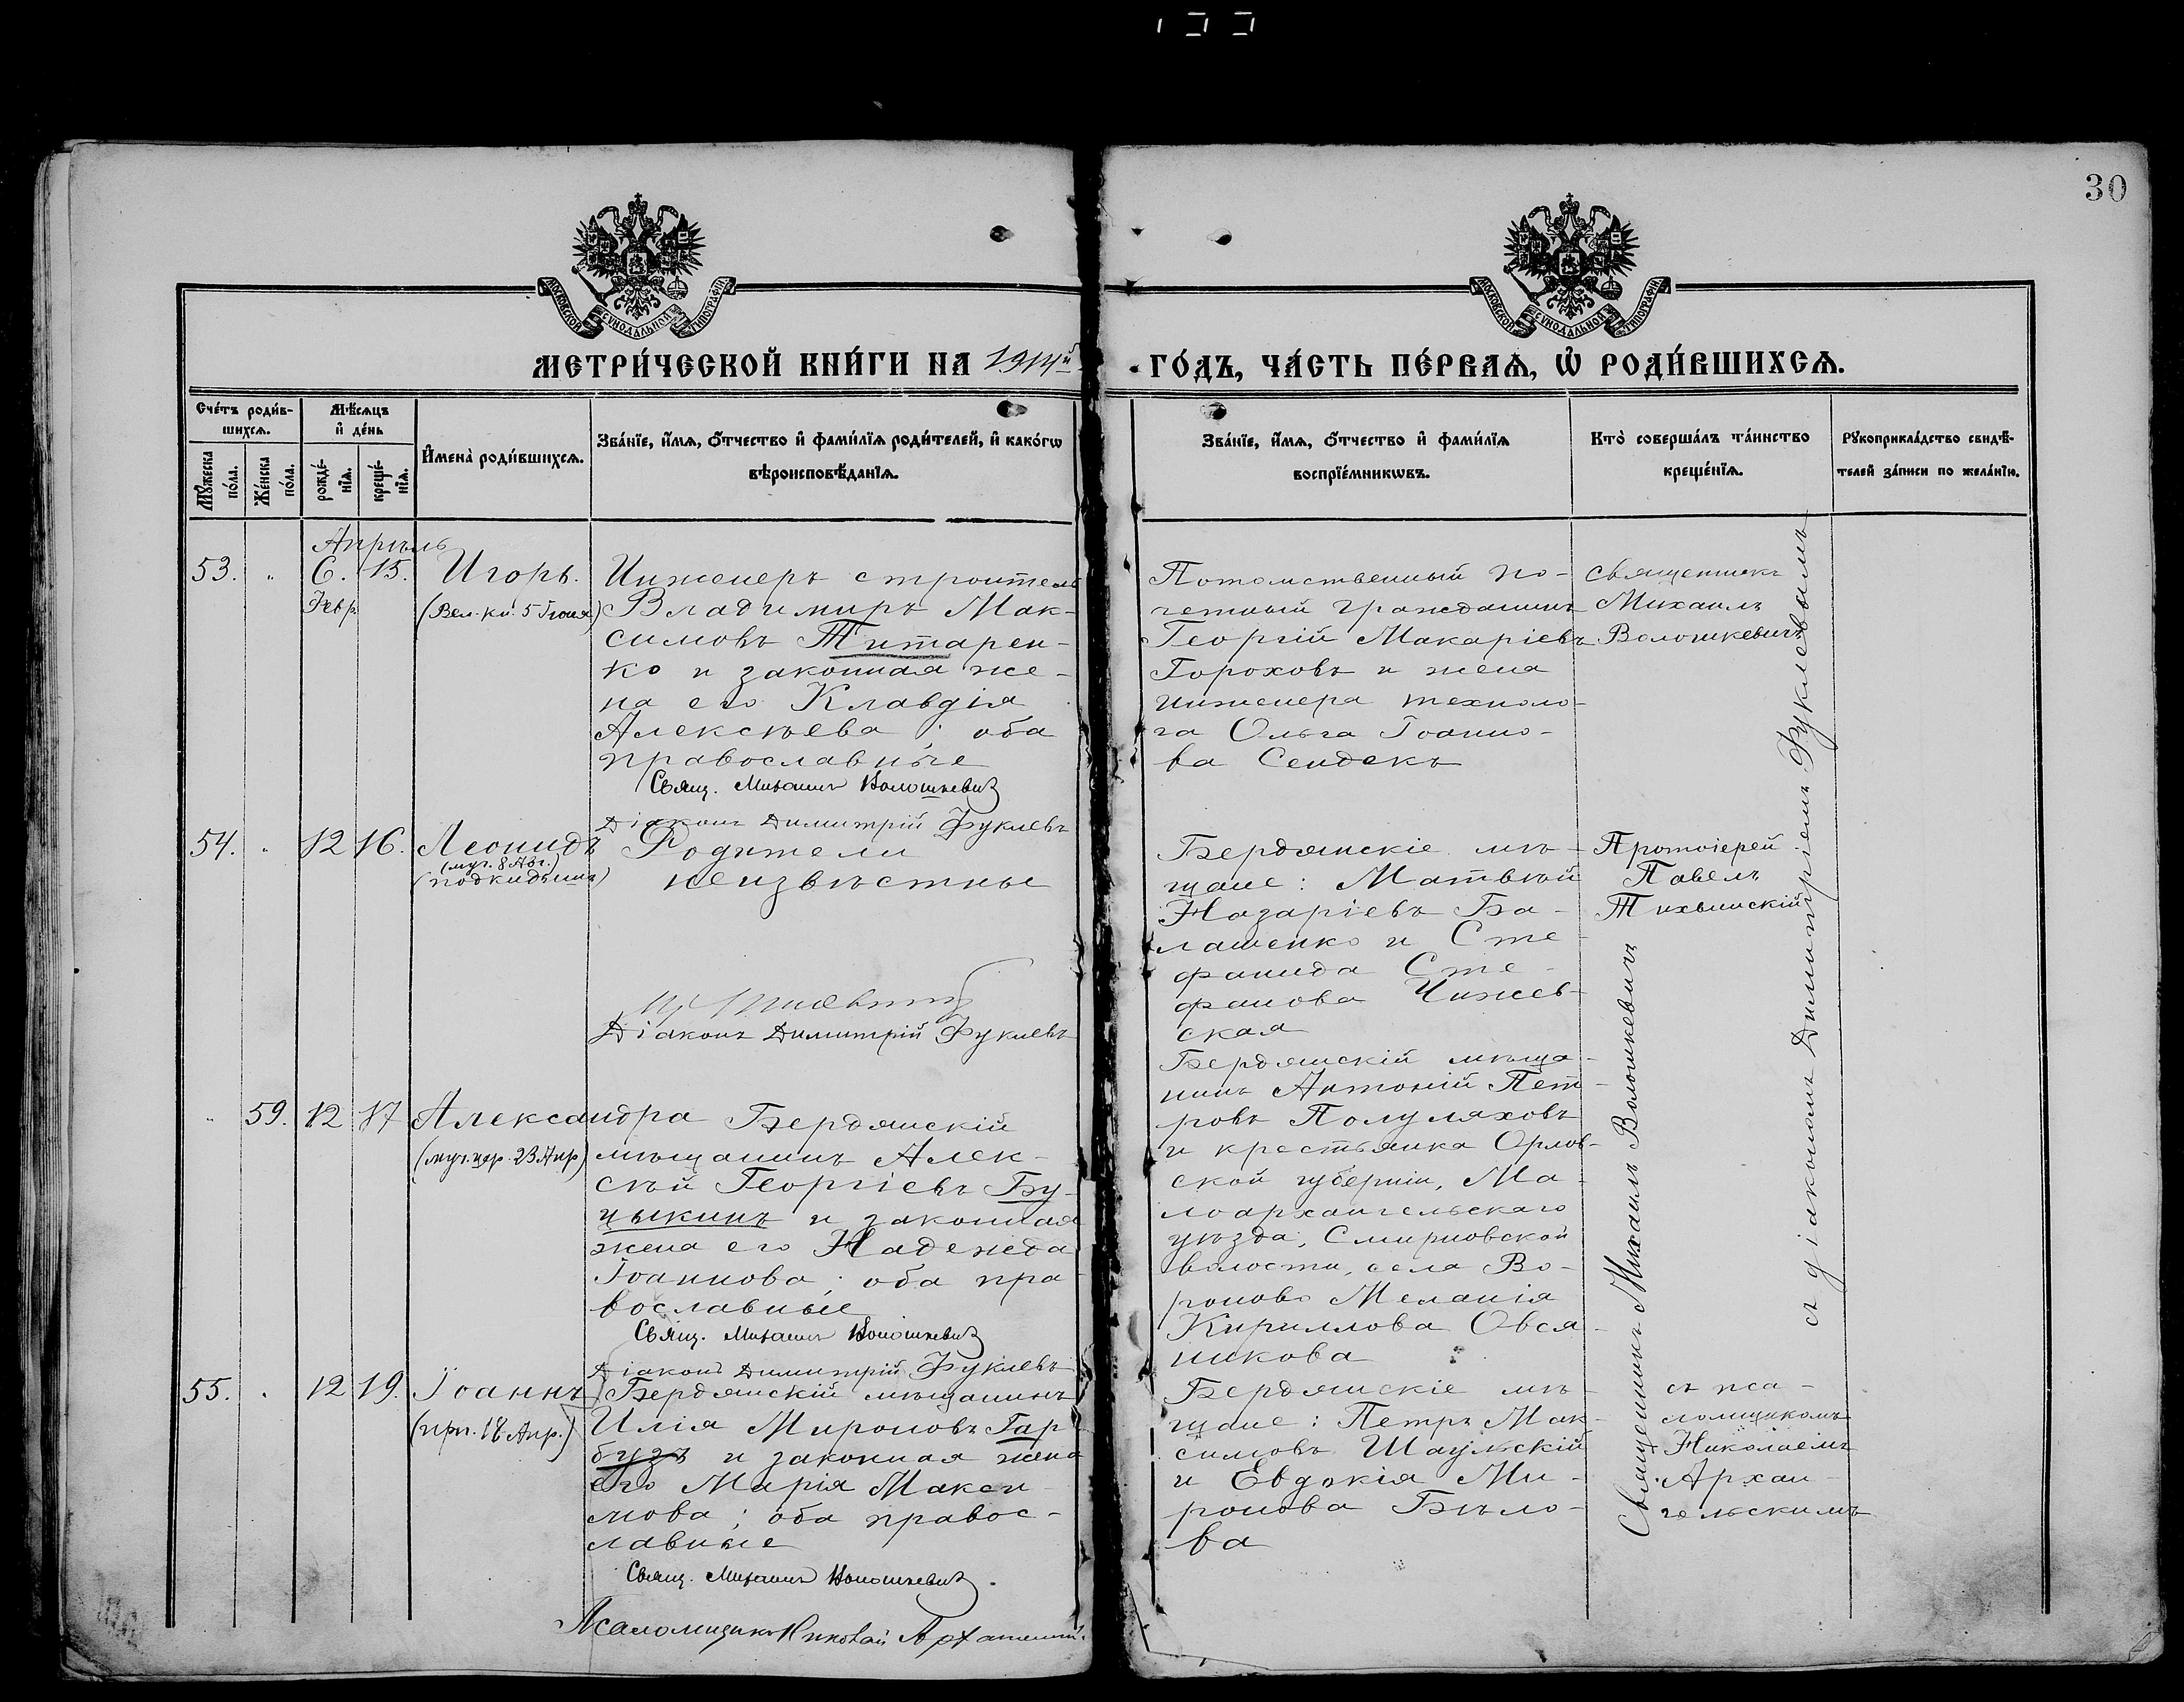 30
МОСКОВСКОЙ СѴНОДАЛЬНОЙ ТИПОГРАФІИ
МОСКОВСКОЙ СѴНОДАЛЬНОЙ ТИПОГРАФІИ
МЕТРИ́ЧЕСКОЙ КНИ́ГИ НА 1914й ГО́ДЪ, ЧА́СТЬ ПЕ́РВАѦ, Ѡ҆ РОДИ́ВШИХСѦ.
Сче́тъ роди́в-
шихсѧ.
Мѣ́сѧцъ
и҆ де́нь
Мꙋ́жеска
по́ла.
Же́нска
по́ла.
рожде́-
нїѧ.
креще́-
нїѧ.
И҆мена̀ роди́вшихсѧ.
Зва́нїе, и҆́мѧ, ѻ҆́тчество и҆ фами́лїѧ роди́телей, и҆ како́гѡ
вѣроисповѣ́данїѧ.
Зва́нїе, и҆́мѧ, ѻ҆́тчество и҆ фами́лїѧ
воспрїе́мникѡвъ.
Кто̀ соверша́лъ та́инство
креще́нїѧ.
Рꙋкоприкла́дство свидѣ́-
телей за́писи по жела́нїю.
Апрѣль
53. " 6. 15. Игорь.
Февр
(Вел. кн. 5 Іюня)
Инженеръ строитель
Владимиръ Мак-
симовъ Титарен-
ко и законная же-
на его Клавдія
Алексѣева; оба
православные
Свящ. Михаилъ Волошкевич
Діаконъ Димитрій Фуклевъ
Потомственный по-
четный гражданинъ
Георгій Макаріевъ
Гороховъ и жена
инженера техноло-
га Ольга Іоанно-
ва Сендекъ
Священникъ
Михаилъ
Волошкевичъ
54. " 12 16. Леонидъ
(муч. 8 Авг.)
(подкидышъ)
Родители
неизвѣстны
Діаконъ Димитрій Фуклевъ
Бердянскіе мѣ-
щане: Матвѣй
Назаріевъ Ба-
лашенко и Сте-
фанида Сте-
фанова Чижев-
ская
Протоіерей
Павелъ
Тихвинскій
" 59. 12 17 Александра
(муч. цар. 23 Апр)
Бердянскій
мѣщанинъ Алек-
сѣй Георгіевъ Бу-
цыкинъ и законная
жена его Надежда
Іоаннова; оба пра-
вославные
Свящ. Михаилъ Волошкевич
Діаконъ Димитрій Фуклевъ
Бердянскій мѣща-
нинъ Антоній Пет-
ровъ Полуляховъ
и крестьянка Орлов-
ской губерніи, Ма-
лоархангельскаго
уѣзда, Смирновской
волости, села Во-
роново Меланія
Кириллова Овся-
никова
Священникъ Михаилъ Волошкевичъ
съ діакономъ Димитріемъ Фуклевымъ
55. " 12 19. Іоаннъ
(прп. 18 Апр.)
Бердянскій мѣщанинъ
Илія Мироновъ Гар-
бузъ и законная жена
его Марія Макси-
мова; оба правос-
лавные
Свящ. Михаилъ Волошкевич.
Псаломщикъ Николай
Бердянскіе мѣ-
щане: Петръ Мак-
симовъ Шаульскій
и Евдокія Ми-
ронова Бѣло-
ва
съ пса-
ломщикомъ
Николаемъ
Архан-
гельскимъ